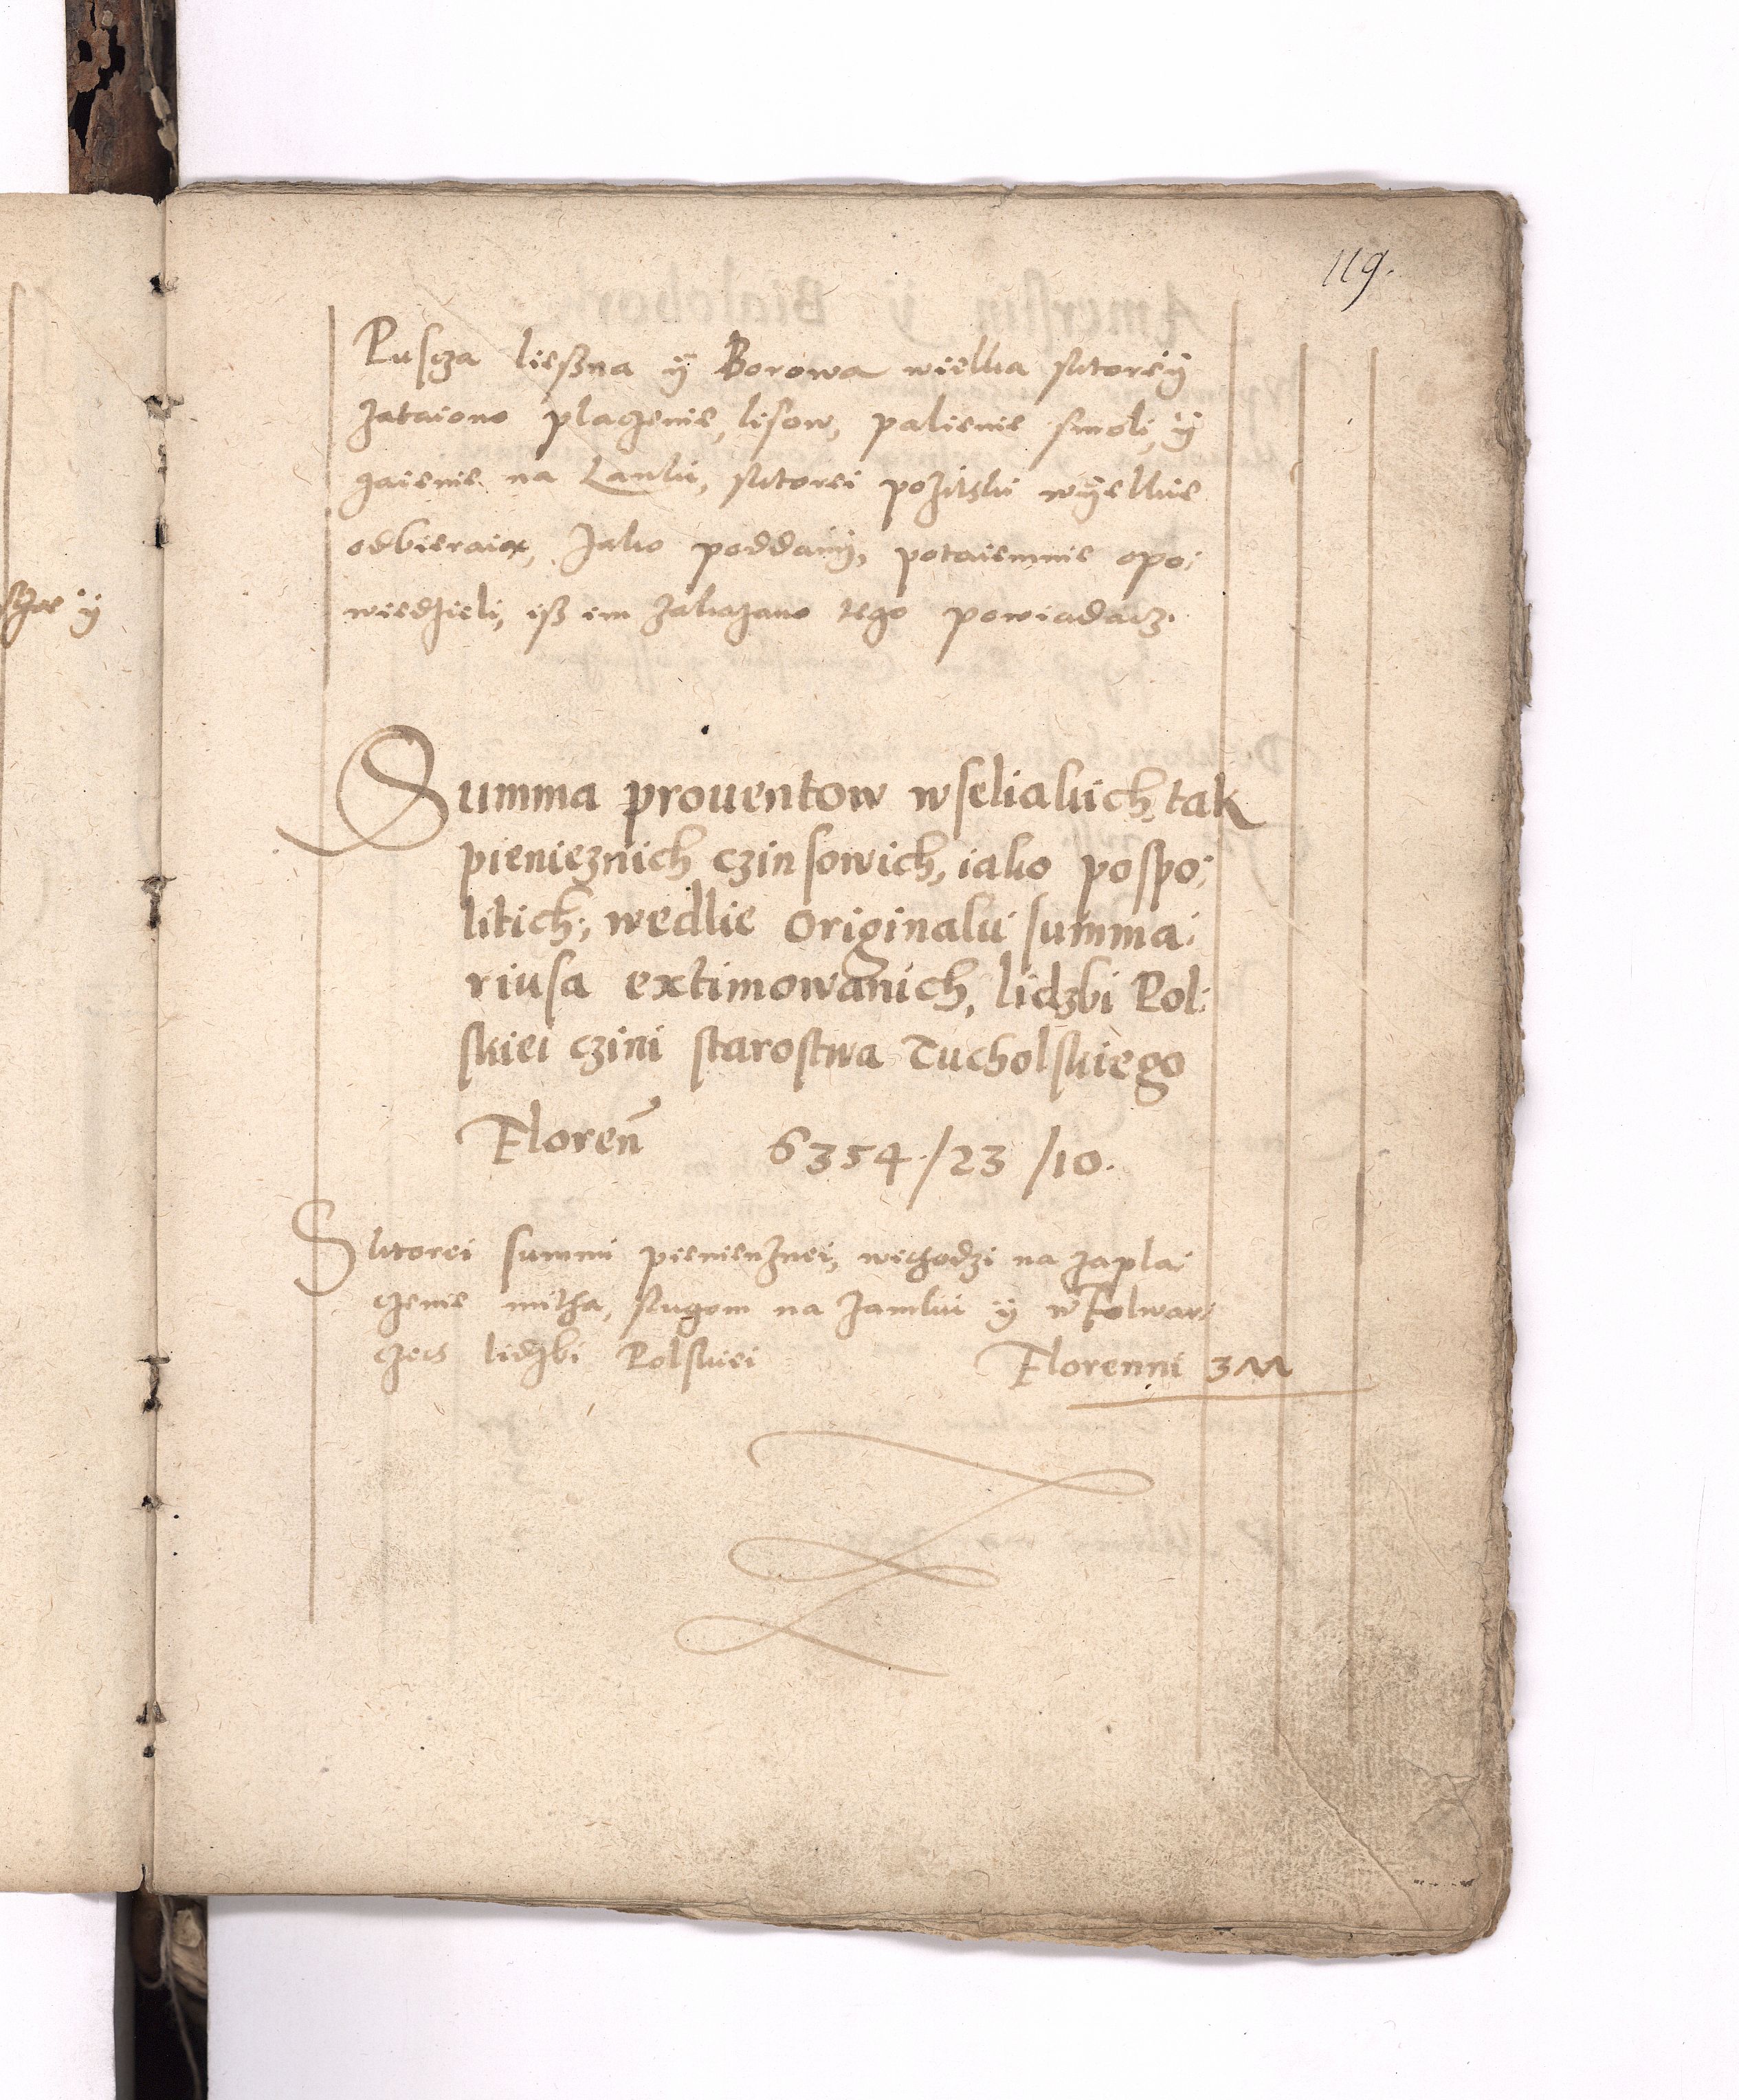 119.
Puscza liesżna ÿ Borowa wielka s ktoreÿ
zataiono placzenie, lisow, palienie smoli, ÿ
gaienie na Lanki, s ktorei pozitki wÿelkie
odbieraią, Jako poddani, potaiemnie opo:
wiedzieli, iß im zakazano tego powiadacz.
Summa prouentow wseliakich, tak
pienieznich czinsowich, iako pospo:
litich; wedlie originalu summa:
riusa extimowanich, lidzbi Pol:
skiei czini starostwa Tucholskiego
Floren 6354./23/10.
S ktorei summi pienienznei, wichodzi na zapla:
czenie mitha, slugom na zamku ÿ w folwar:
czech lidzbi Polskiei Florenni 3